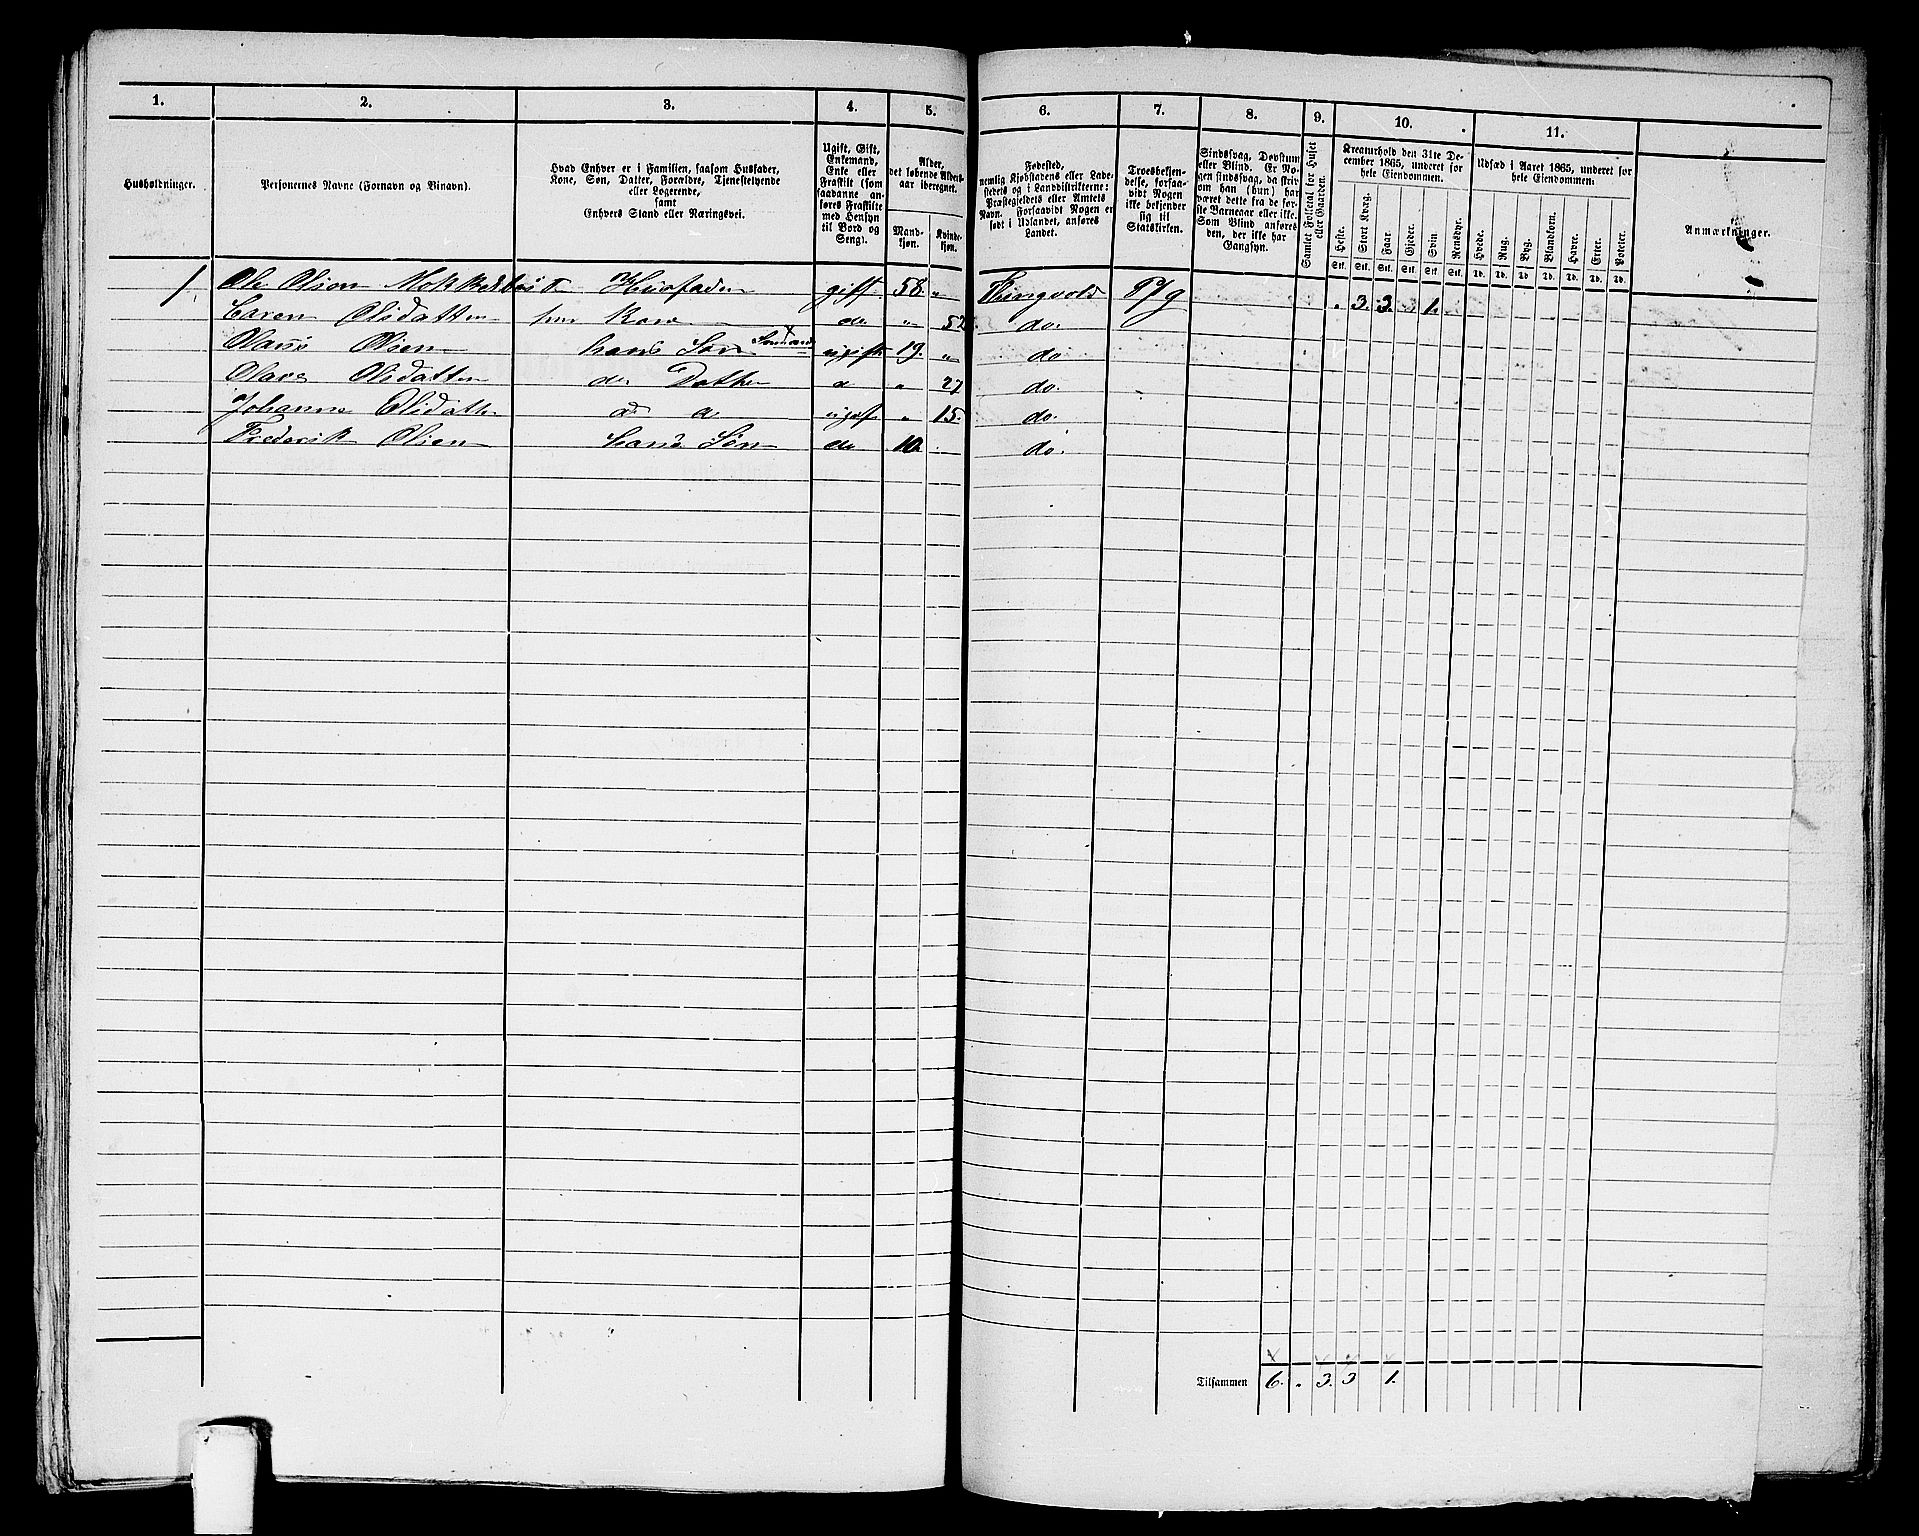 1. 2. 3. 4. 5. 6. 7. 8. 9. 10. 11.
Husholdninger.
Personernes Navne (Fornavn og Binavn).
Hvad Enhver er i Familien, saasom Husfader,
Kone, Søn, Datter, Forældre, Tjenestetyende
eller Logerende,
samt
Enhvers Stand eller Næringsvei.
Ugift, Gift,
Enkemand,
Enke eller
Fraskilt (som
saadanne an-
føres Fraskilte
med Hensyn
til Bord og
Seng).
Alder,
det løbende Alders-
aar iberegnet.
Mand-
kjøn.
Kvinde-
kjøn.
Fødested,
nemlig Kjøbstadens eller Lade-
stedets og i Landdistrikterne:
Præstegjeldets eller Amtets
Navn. Forsaavidt Nogen er
født i Udlandet, anføres
Landet.
Troesbekjen-
delse, forsaa-
vidt Nogen
ikke bekjender
sig til
Statskirken.
Sindssvag, Døvstum
eller Blind. Er No-
gen sindssvag, da skri-
ves om han (hun) har
været dette fra de før-
ste Barneaar eller ikke.
Som Blind anføres
den, der ikke har
Gangsyn.
Samlet Folketal for Huset
eller Gaarden.
Kreaturhold den 31te De-
cember 1865, underet for
hele Eiendommen.
Heste. Stort Kvæg. Faar. Gjeder. Svin. Rensdyr.
Stk. Stk. Stk. Stk. Stk. Stk.
Udsæd i Aaret 1865, underet for
hele Eiendommen.
Hvede. Rug. Byg. Blandkorn. Havre. Erter. Poteter.
Td. Td. Td. Td. Td. Td. Td.
Anmærkninger.
1. Ole Olsen Husfader gift 58 „ Thingvold . 3. 3. . 1.
Caren Olsdatter hans Kone do „ 52 do.
Olaus Olsen hans Søn Sømand ugift 19. „ do
Olava Olsdatter do Datter „ 27 do.
Johanne Olsdatter ugift „ 15. do.
Frederik Olsen hans Søn do 10. do.
Tilsammen 6. . 3. 3 1.